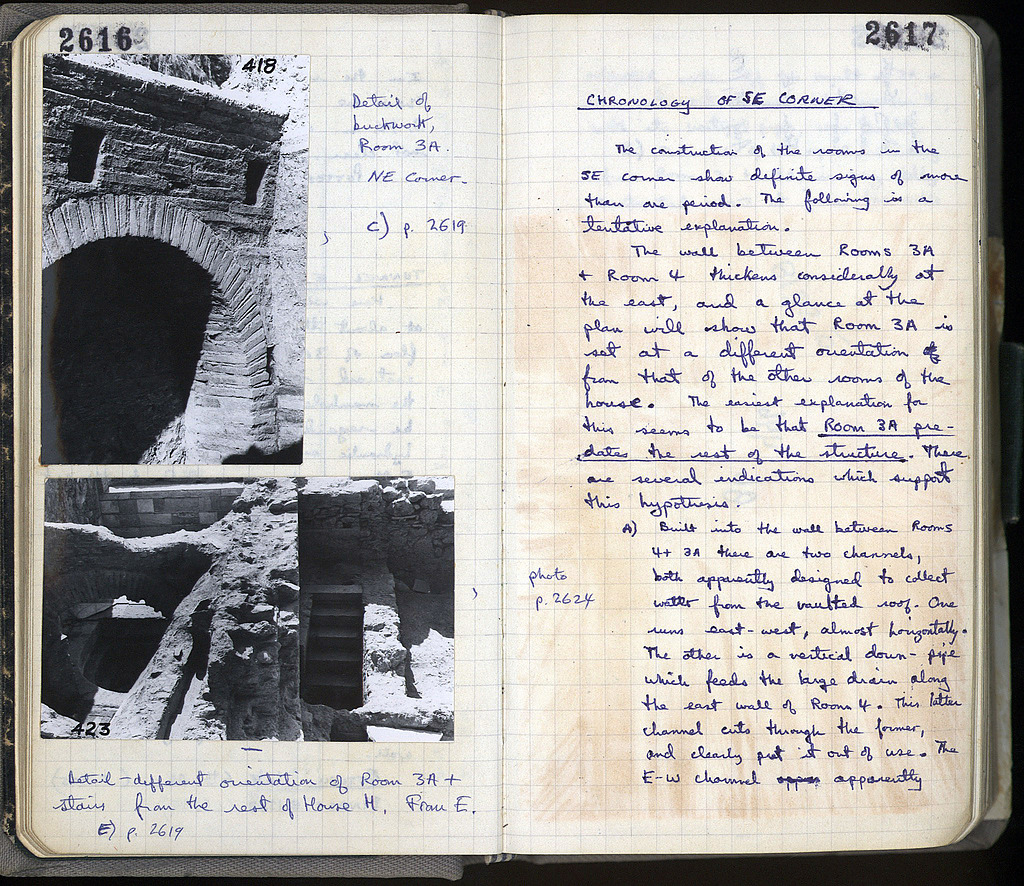 2616
418
Detail of
brickwork,
Room 3A.
NE Corner.
C) p. 2619
423
Detail - different orientation of Room 3A +
stairs from the rest of House H. From E.
E) p. 2619
2617
CHRONOLOGY OF SE CORNER
The construction of the rooms in the
SE corner show definite signs of more
than one period. The following is a
tentative explanation.
The wall between Rooms 3A
+ Room 4 thickens considerably at
the east, and a glance at the
plan will show that Room 3A is
set at a different orientation
from that of the other rooms of the
house. The easiest explanation for
this seems to be that Room 3A pre-
dates the rest of the structure. There
are several indications which support
this hypothesis.
A) Built into the wall between Rooms
4 + 3A there are two channels,
photo
p. 2624
both apparently designed to collect
water from the vaulted roof. One
runs east-west, almost horizontally.
The other is a vertical down-pipe
which feeds the large drain along
the east wall of Room 4. This latter
channel cuts through the former,
and clearly put it out of use. The
E-W channel apparently